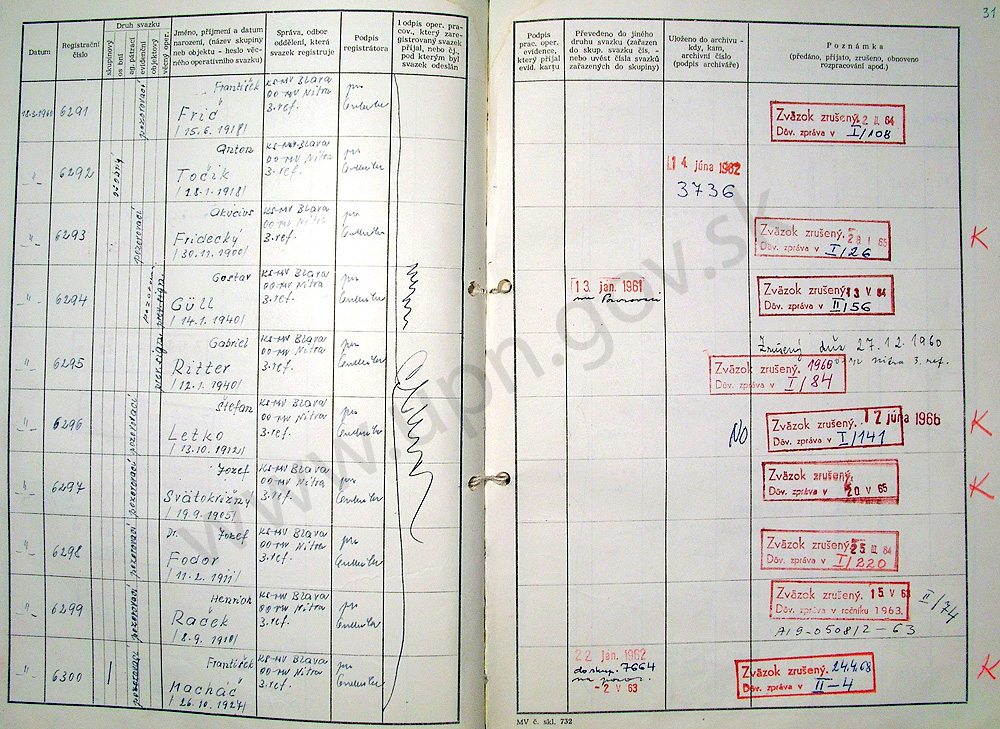 31
Datum
Registrační číslo
Druh svazku
skupinový
osobní
ag. pátrací
evidenční
objektový
věcný oper.
Jméno, příjmení a datum
narození, (název skupiny
neb objektu - heslo věc-
ného operativního svazku)
Správa, odbor
oddělení, která
svazek registruje
Podpis
registrátora
Podpis oper. pra-
cov., který zare-
gistrovaný svazek
přijal, nebo čj.,
pod kterým byl
svazek odeslán
Podpis
prac. oper.
evidence,
který přijal
evid. kartu
Převedeno do jiného
druhu svazku (zařazen
do skup. svazku čís. -
nebo uvést čísla svazků
zařazených do skupiny)
Uloženo do archivu -
kdy, kam,
archivní číslo
(podpis archiváře)
Poznámka
(předáno, přijato, zrušeno, obnoveno
rozpracování apod.)
6291
pozorovací
František
Fric
/ 15.6. 1918/
KS-MV Blava
OO-MV Nitra
3. ref.
Zväzok zrušený.
Dôv. zpráva v I/108
-"-
6292
osobný
Anton
Točik
/ 18.1. 1918/
KS-MV Blava
OO-MV Nitra
3. ref.
14. júna 1962
3736
-"-
6293
pozorovací
Fridecký
/ 30.11. 1900/
KS-MV Blava
OO-MV Nitra
3. ref.
Zväzok zrušený.
Dôv. zpráva v I/26
K
-"-
6294
Gustav
Güll
/ 14.1. 1940/
KS-MV Blava
OO-MV Nitra
3. ref.
13. jan. 1961
Zväzok zrušený. 13 V 64
Dôv. zpráva v II/56
-"-
6295
Gabriel
Ritter
/ 12.1. 1940/
KS-MV Blava
OO-MV Nitra
3. ref.
Zrušený dňa 27.12.1960
Nitra 3. ref.
Zväzok zrušený. 1960
Dôv. zpráva v I/84
-"-
6296
pozorovací
Štefan
Letko
/ 13.10. 1912/
KS-MV Blava
OO-MV Nitra
3. ref.
No
Zväzok zrušený. 12 júna 1966
Dôv. zpráva v I/141
K
-"-
6297
pozorovací
Jozef
Svätokrižny
/ 19.9. 1905/
KS-MV Blava
OO-MV Nitra
3. ref.
Zväzok zrušený.
Dôv. zpráva v 20 V 65
K
-"-
6298
pozorovací
Dr. Jozef
Fodor
/ 11.2. 1911/
KS-MV Blava
OO-MV Nitra
3. ref.
Zväzok zrušený.
Dôv. zpráva v I/220
-"-
6299
pozorovací
Henrich
Racek
KS-MV Blava
OO-MV Nitra
3. ref.
Zväzok zrušený. 15 V 63
Dôv. zpráva v ročníku 1963.
II/74
A/9-0508/2-63
-"-
6300
pozorovací
František
Macháč
/ 26.10. 1927/
KS-MV Blava
OO-MV Nitra
3. ref.
22 jan. 1962
do skup. 7664
- 2 V 63
Zväzok zrušený. 24.4.68
Dôv. zpráva v II-4
K
MV č. skl. 732
www.upn.gov.sk